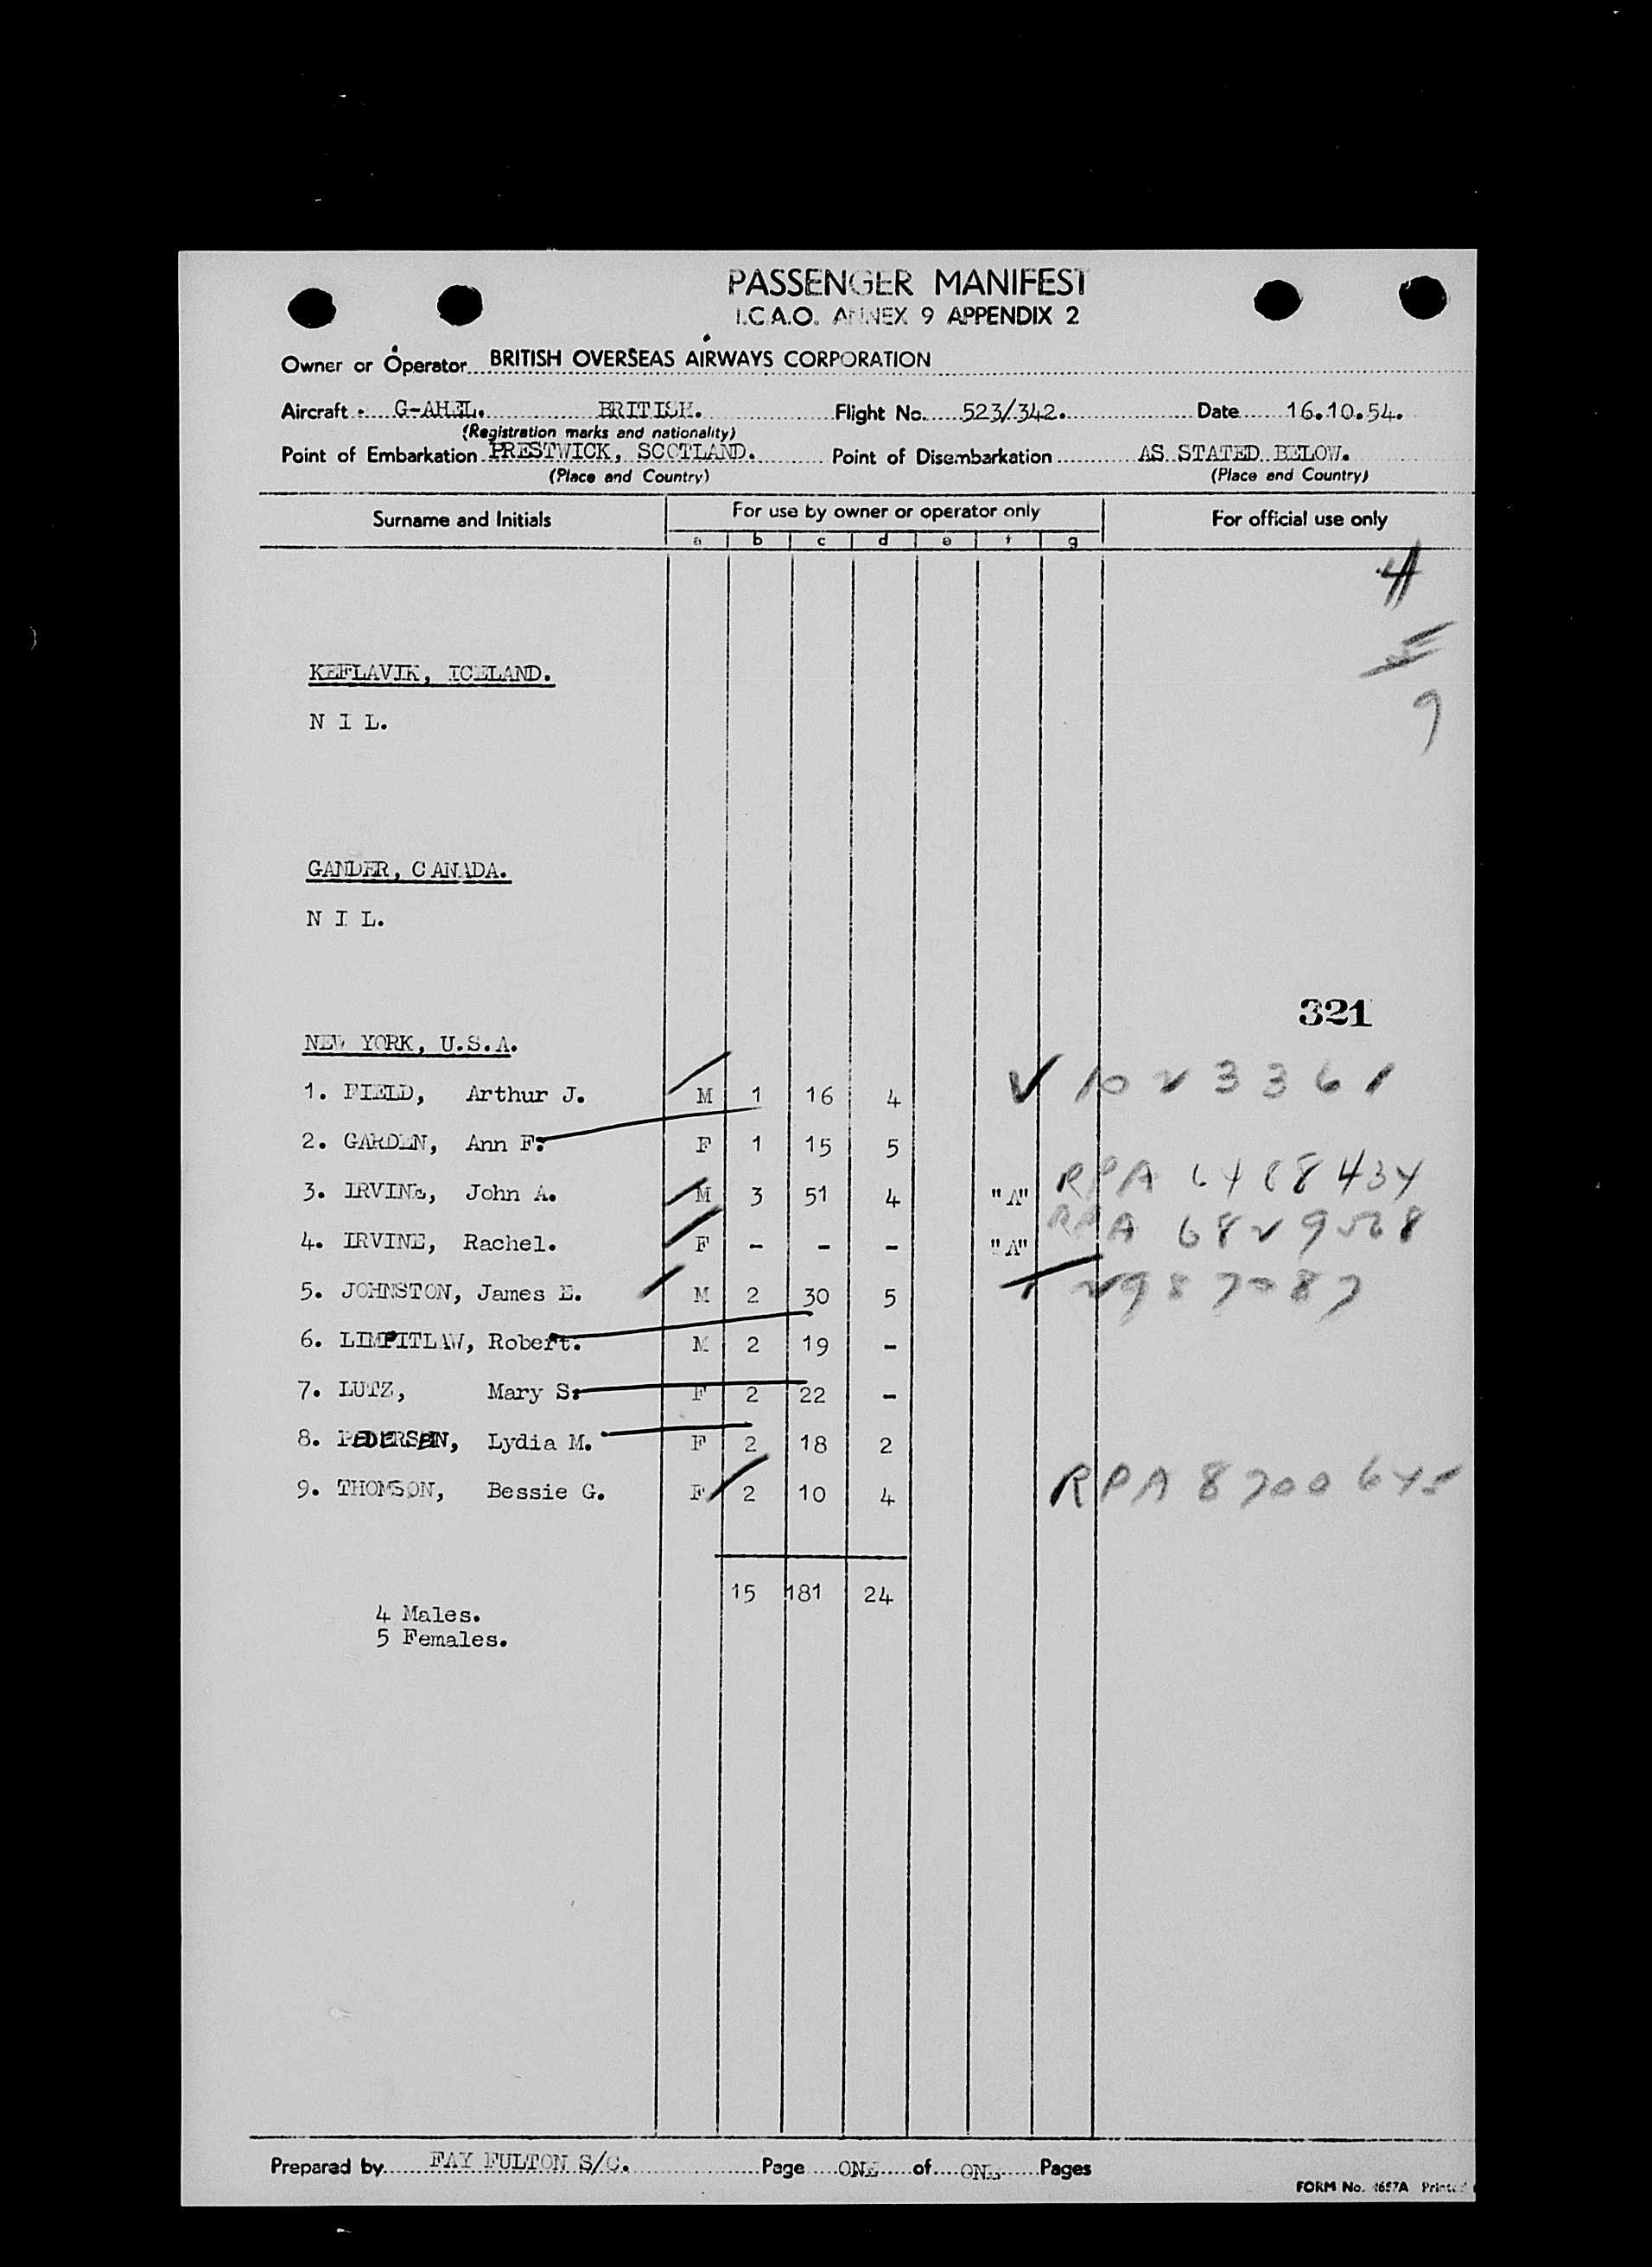 PASSENGER MANIFEST
I.C.A.O. ANNEX 9 APPENDIX 2
Owner or Operator BRITISH OVERSEAS AIRWAYS CORPORATION
Aircraft G-AHEL. BRITISH. Flight No. 523/342. Date 16.10.54.
(Registration marks and nationality)
Point of Embarkation PRESTWICK, SCOTLAND. Point of Disembarkation AS STATED BELOW.
(Place and Country) (Place and Country)
Surname and Initials For use by owner or operator only For official use only
a b c d e f g
4
5
9
KEFLAVIK, ICELAND.
N I L.
GANDER, CANADA.
N I L.
321
NEW YORK, U.S.A.
1. FIELD, Arthur J. M 1 16 4 1023361
2. GARDEN, Ann F. F 1 15 5
3. IRVINE, John A. M 3 51 4 "A" RPA
4. IRVINE, Rachel. F - - - "A" RPA
5. JOHNSTON, James E. M 2 30 5 2987087
6. LIMPITLAW, Robert. M 2 19 -
7. LUTZ, Mary S. F 2 22 -
8. PEDERSEN, Lydia M. F 2 18 2
9. THOMSON, Bessie G. F 2 10 4 RPA
15 181 24
4 Males.
5 Females.
Prepared by FAY FULTON S/C. Page ONE of ONE Pages
FORM No.